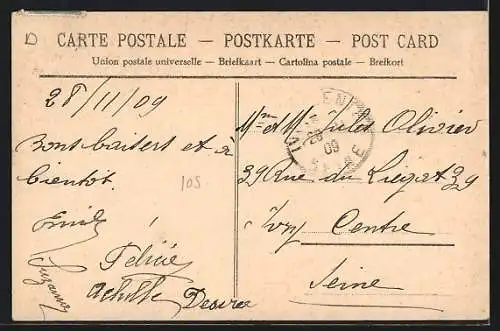 D
CARTE POSTALE — POSTKARTE — POST CARD
Union postale universelle — Briefkaart — Cartolina postale — Brefkort
28/11/09
Bons baisers et a
bientot
105
Emile
Félicie
Suzanne
Achille Desirée
Mme et M Jules Olivier
39 Rue du Liégat 39
Ivry Centre
Seine
09